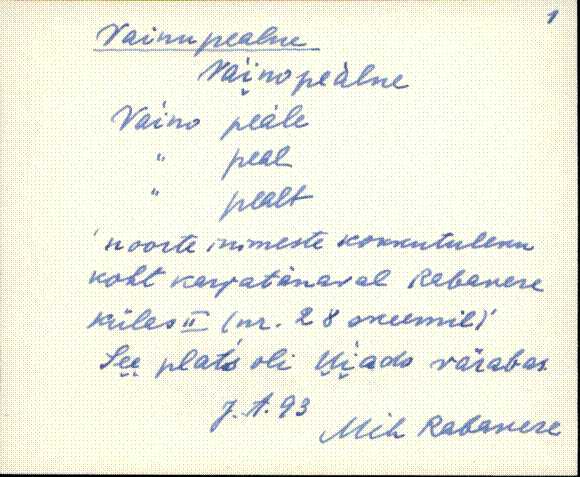 1
Vainupealne
Vainopealne
Vaino peale
" peal
" pealt
'noorte inimeste kokkutuleku
koht karjatänaval Rabavere
külas II (nr. 28 skeemil)'
See plats oli Uiado värabas
J. A. 93
Mih Rabavere